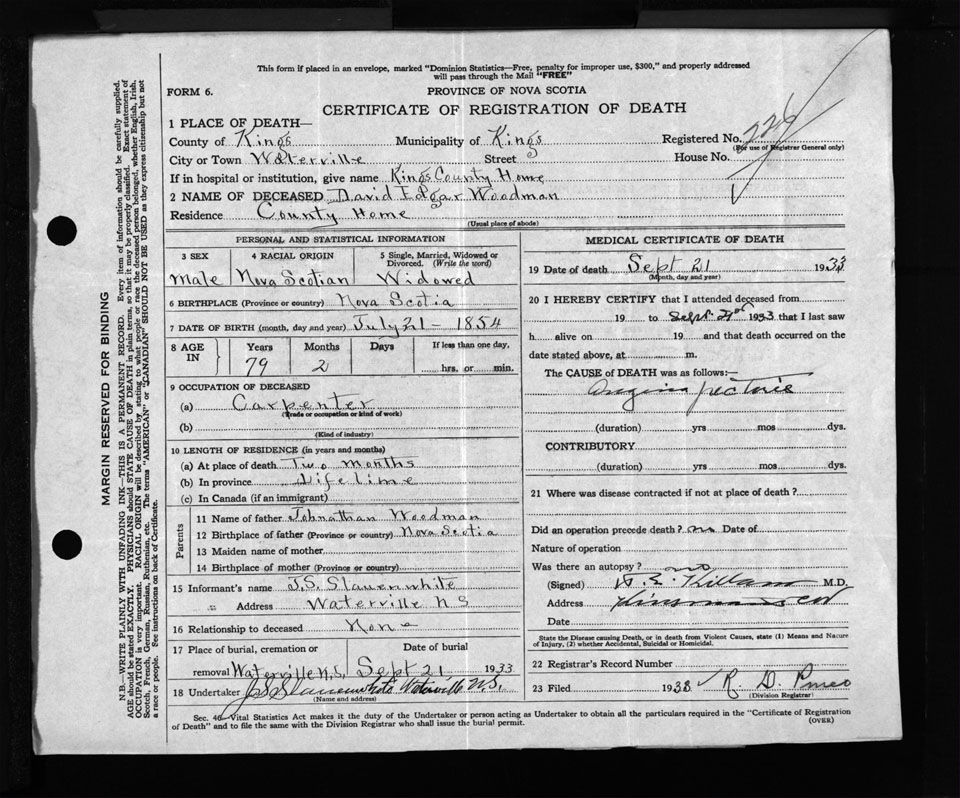 This form if placed in an envelope, marked "Dominion Statistics—Free, penalty for improper use, $300," and properly addressed
will pass through the Mail "FREE"
FORM 6.
PROVINCE OF NOVA SCOTIA
CERTIFICATE OF REGISTRATION OF DEATH
1 PLACE OF DEATH—
County of Kings Municipality of Kings Registered No.
(For use of Registrar General only)
City or Town Waterville Street House No.
If in hospital or institution, give name Kings County Home
2 NAME OF DECEASED David Edgar Woodman
Residence County Home
(Usual place of abode)
PERSONAL AND STATISTICAL INFORMATION
3 SEX 4 RACIAL ORIGIN 5 Single, Married, Widowed or Divorced. (Write the word)
Male Nova Scotian Widowed
6 BIRTHPLACE (Province or country) Nova Scotia
7 DATE OF BIRTH (month, day and year) July 21 - 1854
8 AGE IN Years Months Days If less than one day,
79 2 hrs. or min.
9 OCCUPATION OF DECEASED
(a) Carpenter
(Trade or occupation or kind of work)
(b)
(Kind of industry)
10 LENGTH OF RESIDENCE (in years and months)
(a) At place of death Two months
(b) In province Lifetime
(c) In Canada (if an immigrant)
Parents
11 Name of father Johnathan Woodman
12 Birthplace of father (Province or country) Nova Scotia
13 Maiden name of mother
14 Birthplace of mother (Province or country)
15 Informant's name J.S. Slauenwhite
Address Waterville N S
16 Relationship to deceased None
17 Place of burial, cremation or Date of burial
removal Waterville N.S. Sept 21 1933
18 Undertaker J.S. Slauenwhite Waterville N.S.
(Name and address)
MEDICAL CERTIFICATE OF DEATH
19 Date of death Sept 21 1933
(Month, day and year)
20 I HEREBY CERTIFY that I attended deceased from
19 to Sept. 21st 1933 that I last saw
h alive on 19 and that death occurred on the
date stated above, at m.
The CAUSE of DEATH was as follows:—
Angina pectoris
(duration) yrs mos dys.
CONTRIBUTORY
(duration) yrs mos dys.
21 Where was disease contracted if not at place of death?
Did an operation precede death? no Date of
Nature of operation
Was there an autopsy? no
(Signed) Killam M.D.
Address
Date
State the Disease causing Death, or in death from Violent Causes, state (1) Means and Nature
of Injury, (2) whether Accidental, Suicidal or Homicidal.
22 Registrar's Record Number
23 Filed 1933 R. D.
(Division Registrar)
Sec. 46—Vital Statistics Act makes it the duty of the Undertaker or person acting as Undertaker to obtain all the particulars required in the "Certificate of Registration
of Death" and to file the same with the Division Registrar who shall issue the burial permit. (OVER)
MARGIN RESERVED FOR BINDING
N.B.—WRITE PLAINLY WITH UNFADING INK—THIS IS A PERMANENT RECORD. Every item of information should be carefully supplied.
AGE should be stated EXACTLY. PHYSICIANS should STATE CAUSE OF DEATH in plain terms, so that it may be properly classified. Exact statement of
OCCUPATION is very important. RACIAL ORIGIN will be described by stating to what people or race the deceased person belonged, whether English, Irish,
Scotch, French, German, Russian, Ruthenian, etc. The terms "AMERICAN" or "CANADIAN" SHOULD NOT BE USED as they express citizenship but not
a race or people. See instructions on back of Certificate.